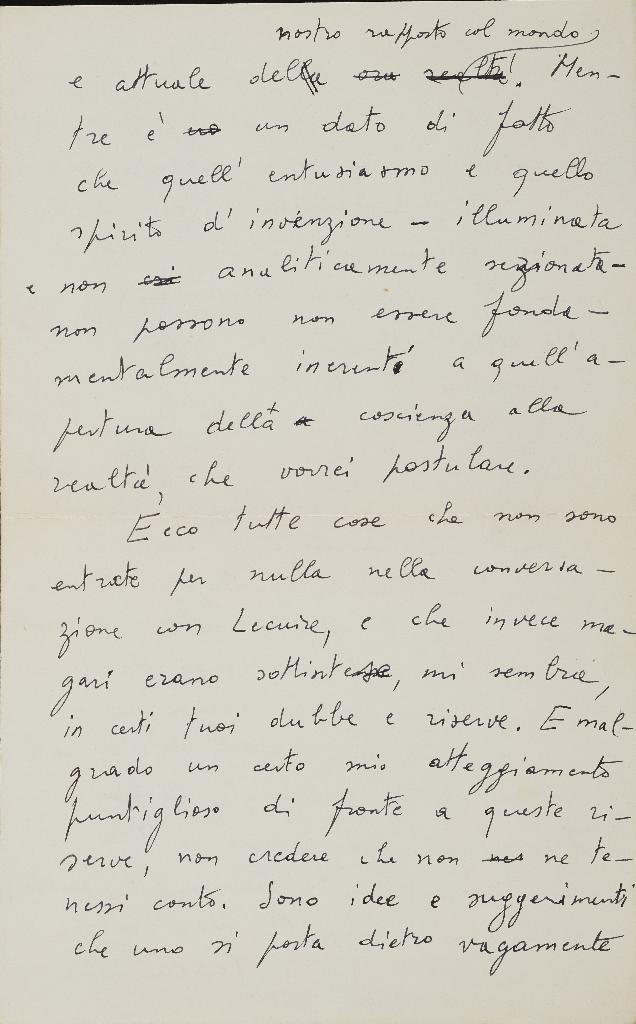 nostro rapporto col mondo
e attuale della realtà. Men-
tre è un dato di fatto
che quell'entusiasmo e quello
spirito d'invenzione - illuminata
e non analiticamente sezionata -
non possono non essere fonda-
mentalmente inerenti a quell'a-
pertura della coscienza alla
realtà, che vorrei postulare.
Ecco tutte cose che non sono
entrate per nulla nella conversa-
zione con Lecuire, e che invece ma-
gari erano sottintese, mi sembra,
in certi tuoi dubbe e riserve. E mal-
grado un certo mio atteggiamento
puntiglioso di fronte a queste ri-
serve, non credere che non ne te-
nessi conto. Sono idee e suggerimenti
che uno si porta dietro vagamente